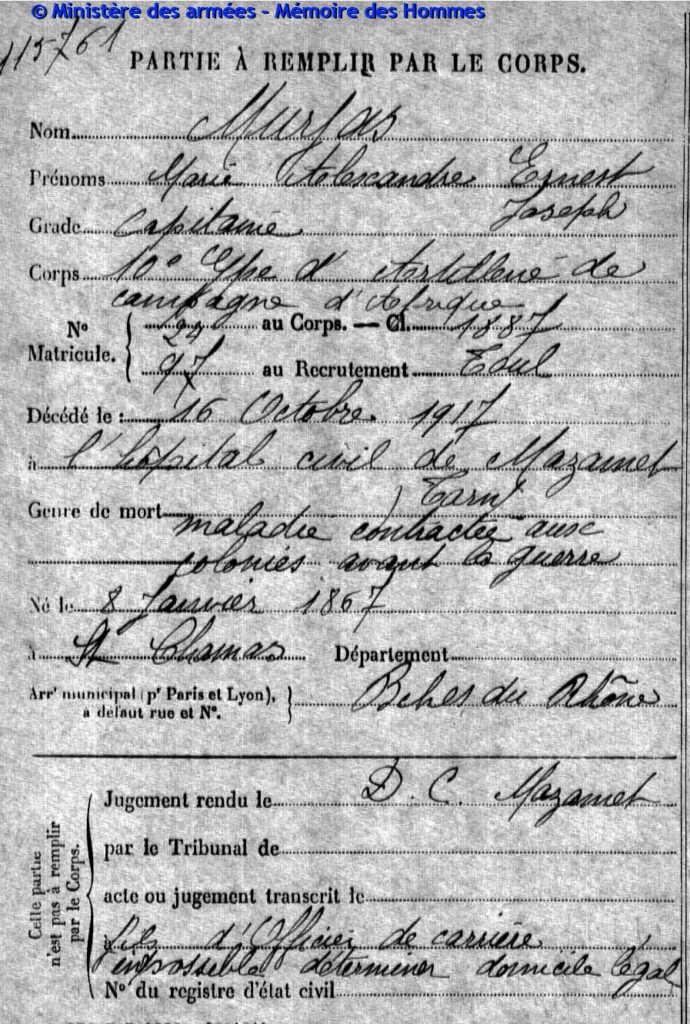 © Ministère des armées - Mémoire des Hommes
115761
PARTIE À REMPLIR PAR LE CORPS.
Nom
Prénoms Marie Alexandre Ernest
Joseph
Grade Capitaine
Corps 10e Gpe d'Artillerie de
campagne d'Afrique
N° Matricule. 24 au Corps. — Cl. 1887
97 au Recrutement Toul
Décédé le : 16 Octobre 1917
à l'hôpital civil de Mazamet
Tarn
Genre de mort maladie contractée aux
colonies avant la guerre
Né le 8 Janvier 1867
à St Chamas Département
Arrt municipal (pr Paris et Lyon), à défaut rue et N°. Bches du Rhône
Celle partie n'est pas à remplir par le Corps.
Jugement rendu le D. C. Mazamet
par le Tribunal de
acte ou jugement transcrit le
à fils d'Officier de carrière
impossible déterminer domicile légal
N° du registre d'état civil